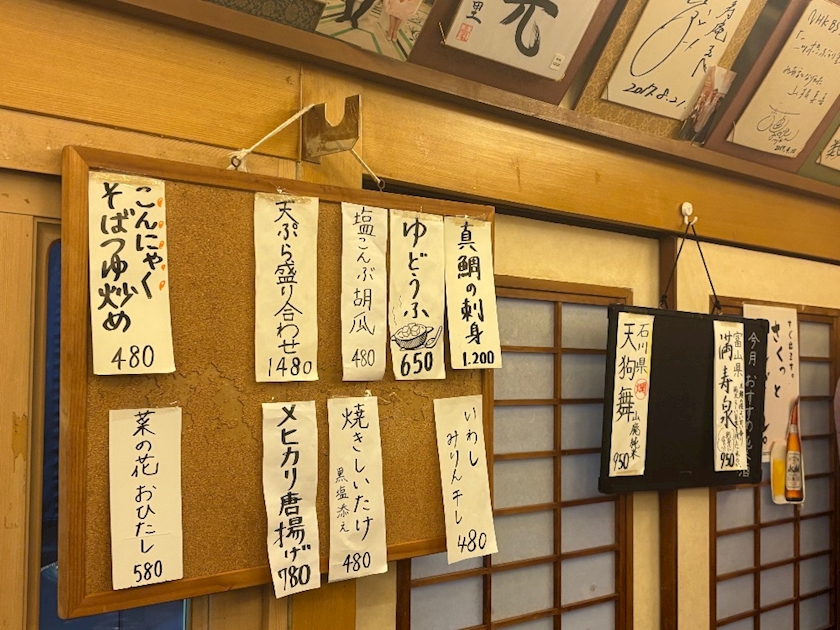 真鯛の刺身
1.200
ゆどうふ
650
塩こんぶ胡瓜
480
天ぷら盛り合わせ
1480
こんにゃく
そばつゆ炒め
480
いわし
みりん干し
480
焼きしいたけ
黒塩添え
480
メヒカリ唐揚げ
780
菜の花 おひたし
580
今月 おすすめの
酒
富山県
満寿泉
950
石川県
天狗舞
山廃純米
950
さくっと
2017.8.21
NHKBS